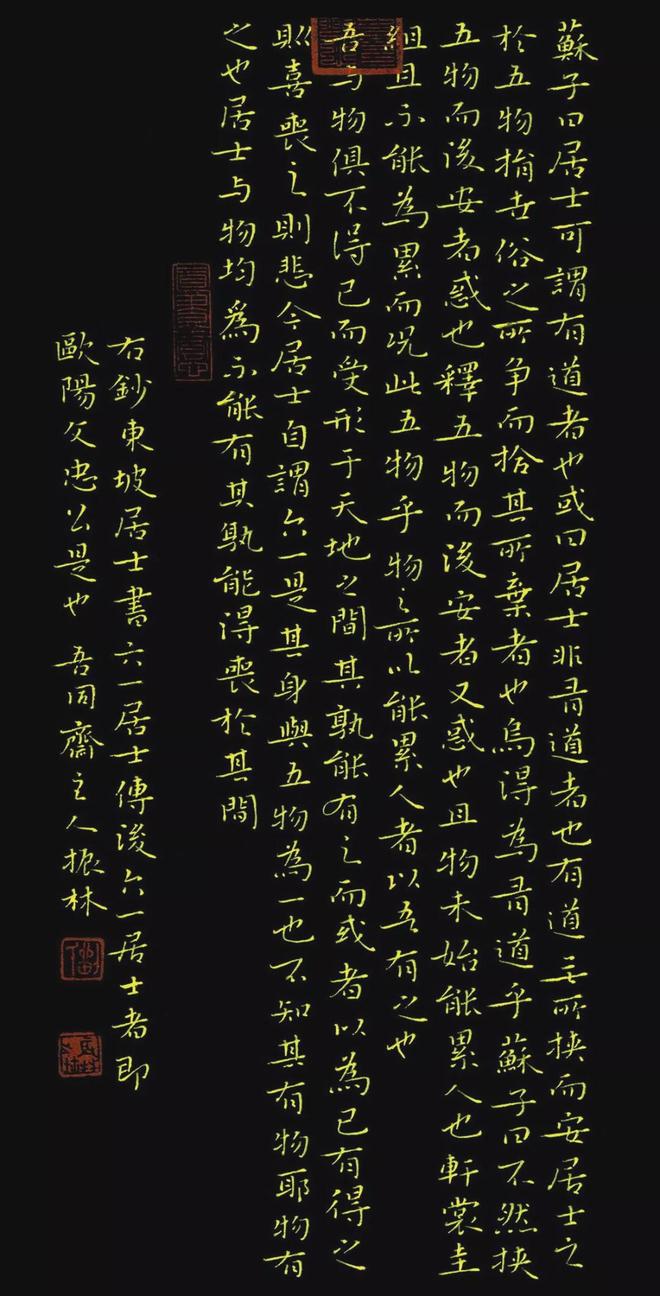 蘇子曰居士可謂有道者也或曰居士非有道者也有道者無所挾而安居士之
於五物捐世俗之所争而拾其所棄者也烏得為有道乎蘇子曰不然挾
五物而後安者惑也釋五物而後安者又惑也且物未始能累人也軒裳圭
組且不能為累而況此五物乎物之所以能累人者以吾有之也
吾与物俱不得已而受形于天地之間其孰能有之而或者以為已有得之
則喜喪之則悲今居士自謂六一是其身與五物為一也不知其有物耶物有
之也居士与物均為不能有其孰能得喪於其間
右鈔東坡居士書六一居士傳後六一居士者即
歐陽文忠公是也 吾同齋主人振林